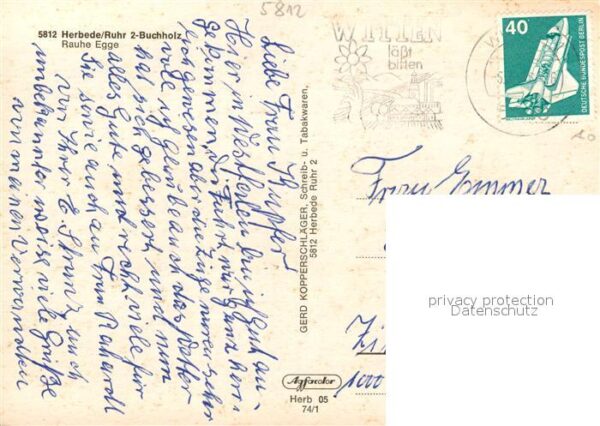 5812
5812 Herbede/Ruhr 2-Buchholz
Rauhe Egge
WITTEN
läßt
bitten
40
DEUTSCHE BUNDESPOST BERLIN
Liebe Frau
Hier in Westfalen bin ich gut an-
gekommen, die Fahrt war ganz herr-
lich gewesen aber die Züge waren sehr
voll ich glaube auch das Wetter
hat sich gebessert und nun
alles Gute und recht viele für
Sie sowie auch an Frau
von Ihrer E. und
unbekannter weise viele Grüße
von meinen Verwandten
GERD KOPPERSCHLÄGER, Schreib- u. Tabakwaren,
5812 Herbede Ruhr 2
Frau Emmer
1000
privacy protection
Datenschutz
Agfacolor
Herb 05
74/1